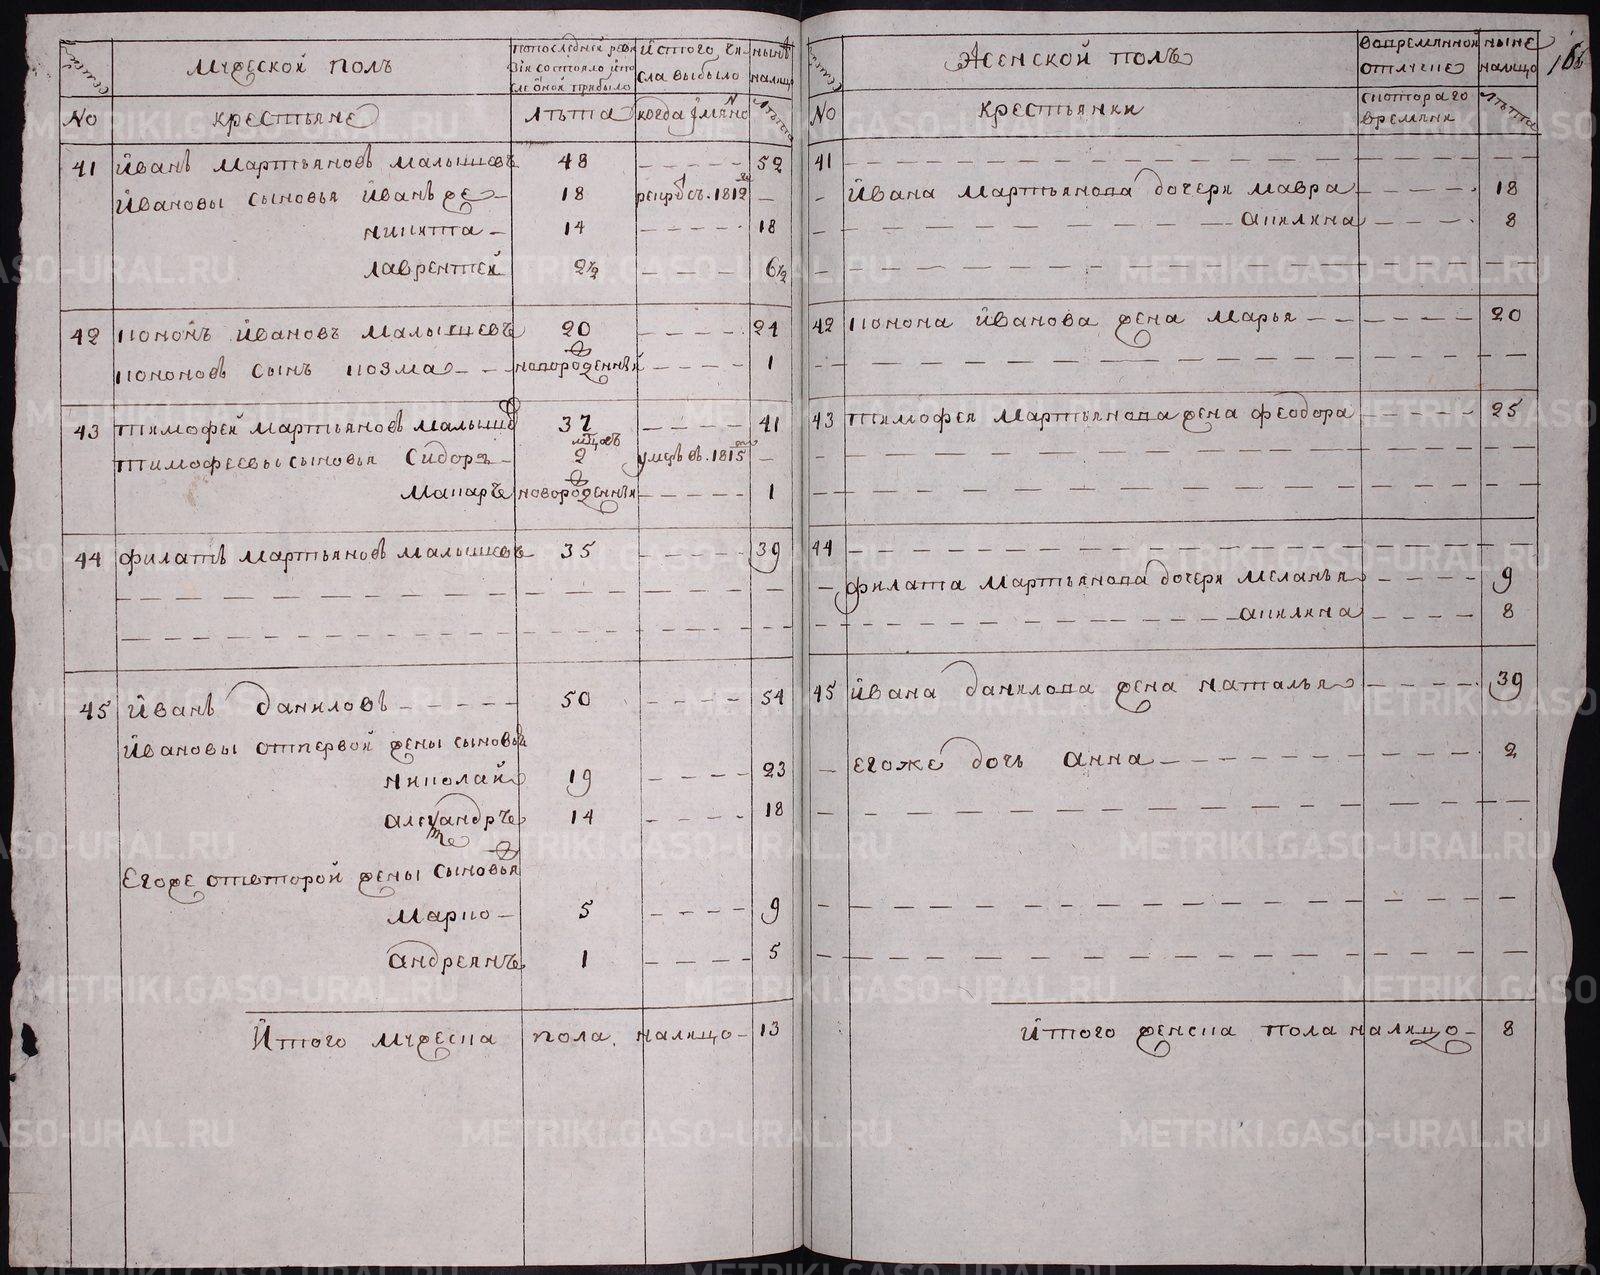 семьи
Мужеской полъ
попоследней реви
зіи состояло ипо
сле оной прибыло
Истого чи
сла выбыло
нынѣ
налицо
No
крестьяне
Лѣта
когда имяно
Лѣта
41 Иванъ Мартьяновъ Малышевъ 48 52
Ивановы сыновья Иванъ же 18 рекрутъ. 1812 го
Никита 14 18
Лаврентей 2½ 6½
42 Кононъ Ивановъ Малышевъ 20 24
Кононовъ сынъ Козма новорожденный 1
43 Тимофей Мартьяновъ Малышевъ 37 41
Тимофеевы сыновья Сидоръ 2 мѣцовъ умре въ. 1815 го
Макаръ новорожденный 1
44 Филатъ Мартьяновъ Малышевъ 35 39
45 Иванъ Даниловъ 50 54
Ивановы отпервой жены сыновья
Николай 19 23
Александръ 14 18
Егоже отвторой жены сыновья
Марко 5 9
Андреянъ 1 5
Итого мужеска пола налицо 13
семьи
Женской полъ
вовременной
отлучке
ныне
налицо
166
No
крестьянки
скотораго
времяни
Лѣта
41
Ивана Мартьянова дочеря Мавра 18
Акилина 8
42 Конона Иванова жена Марья 20
43 Тимофея Мартьянова жена Феодора 25
44
Филата Мартьянова дочеря Меланья 9
Акилина 8
45 Ивана Данилова жена Наталья 39
Егоже дочь Анна 2
Итого женска пола налицо 8
METRIKI.GASO-URAL.RU